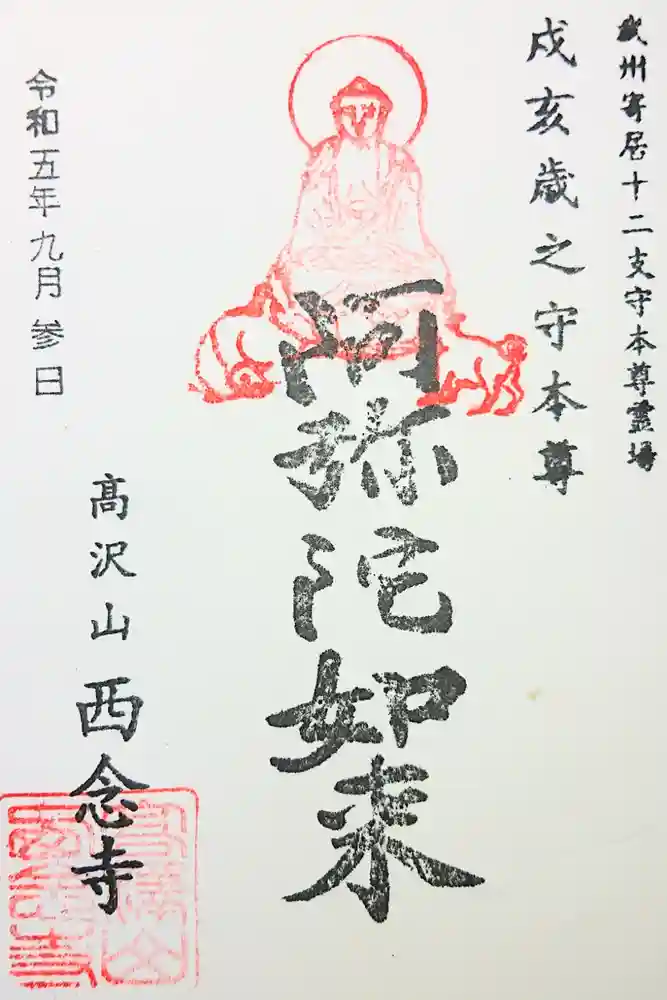 武州寄居十二支守本尊霊場
戌亥歳之守本尊
阿弥陀如来
髙沢山西念寺
令和五年九月参日